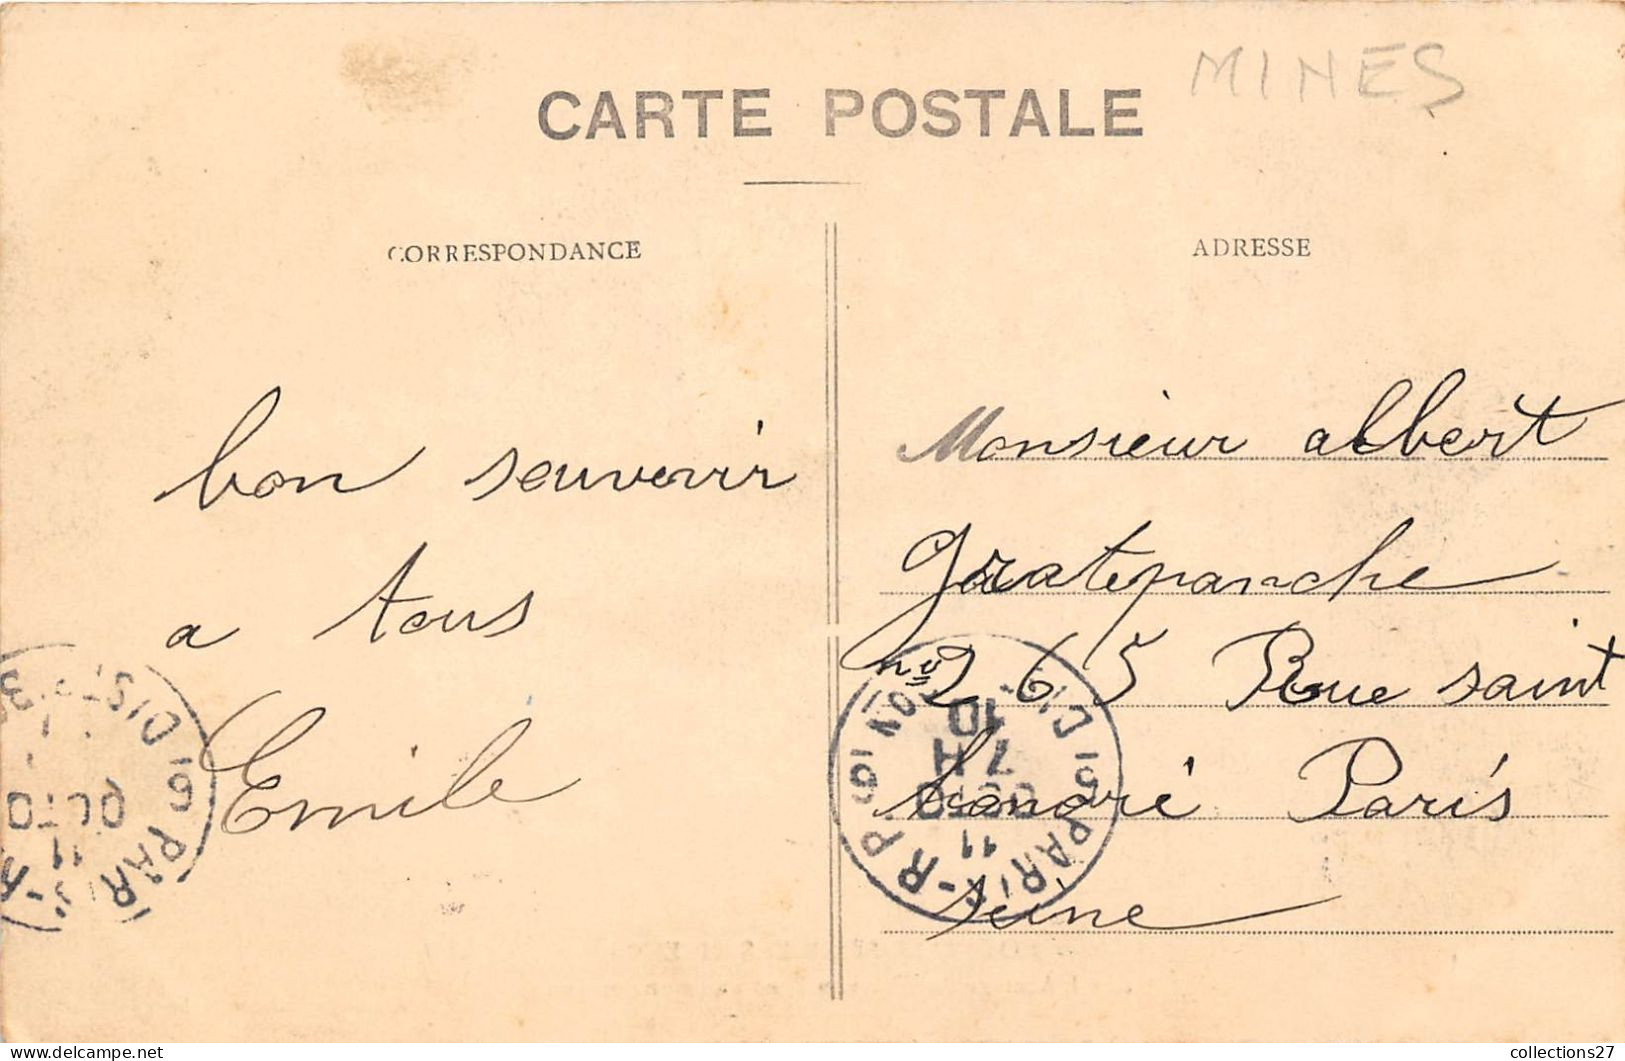 MINES
CARTE POSTALE
CORRESPONDANCE
ADRESSE
bon souvenir
a tous
Emile
Monsieur albert
gratepanche
nº 265 Rue saint
honoré Paris
seine
PARIS
11
OCTO
7 H
10
PAR
11
OCTO
collections27